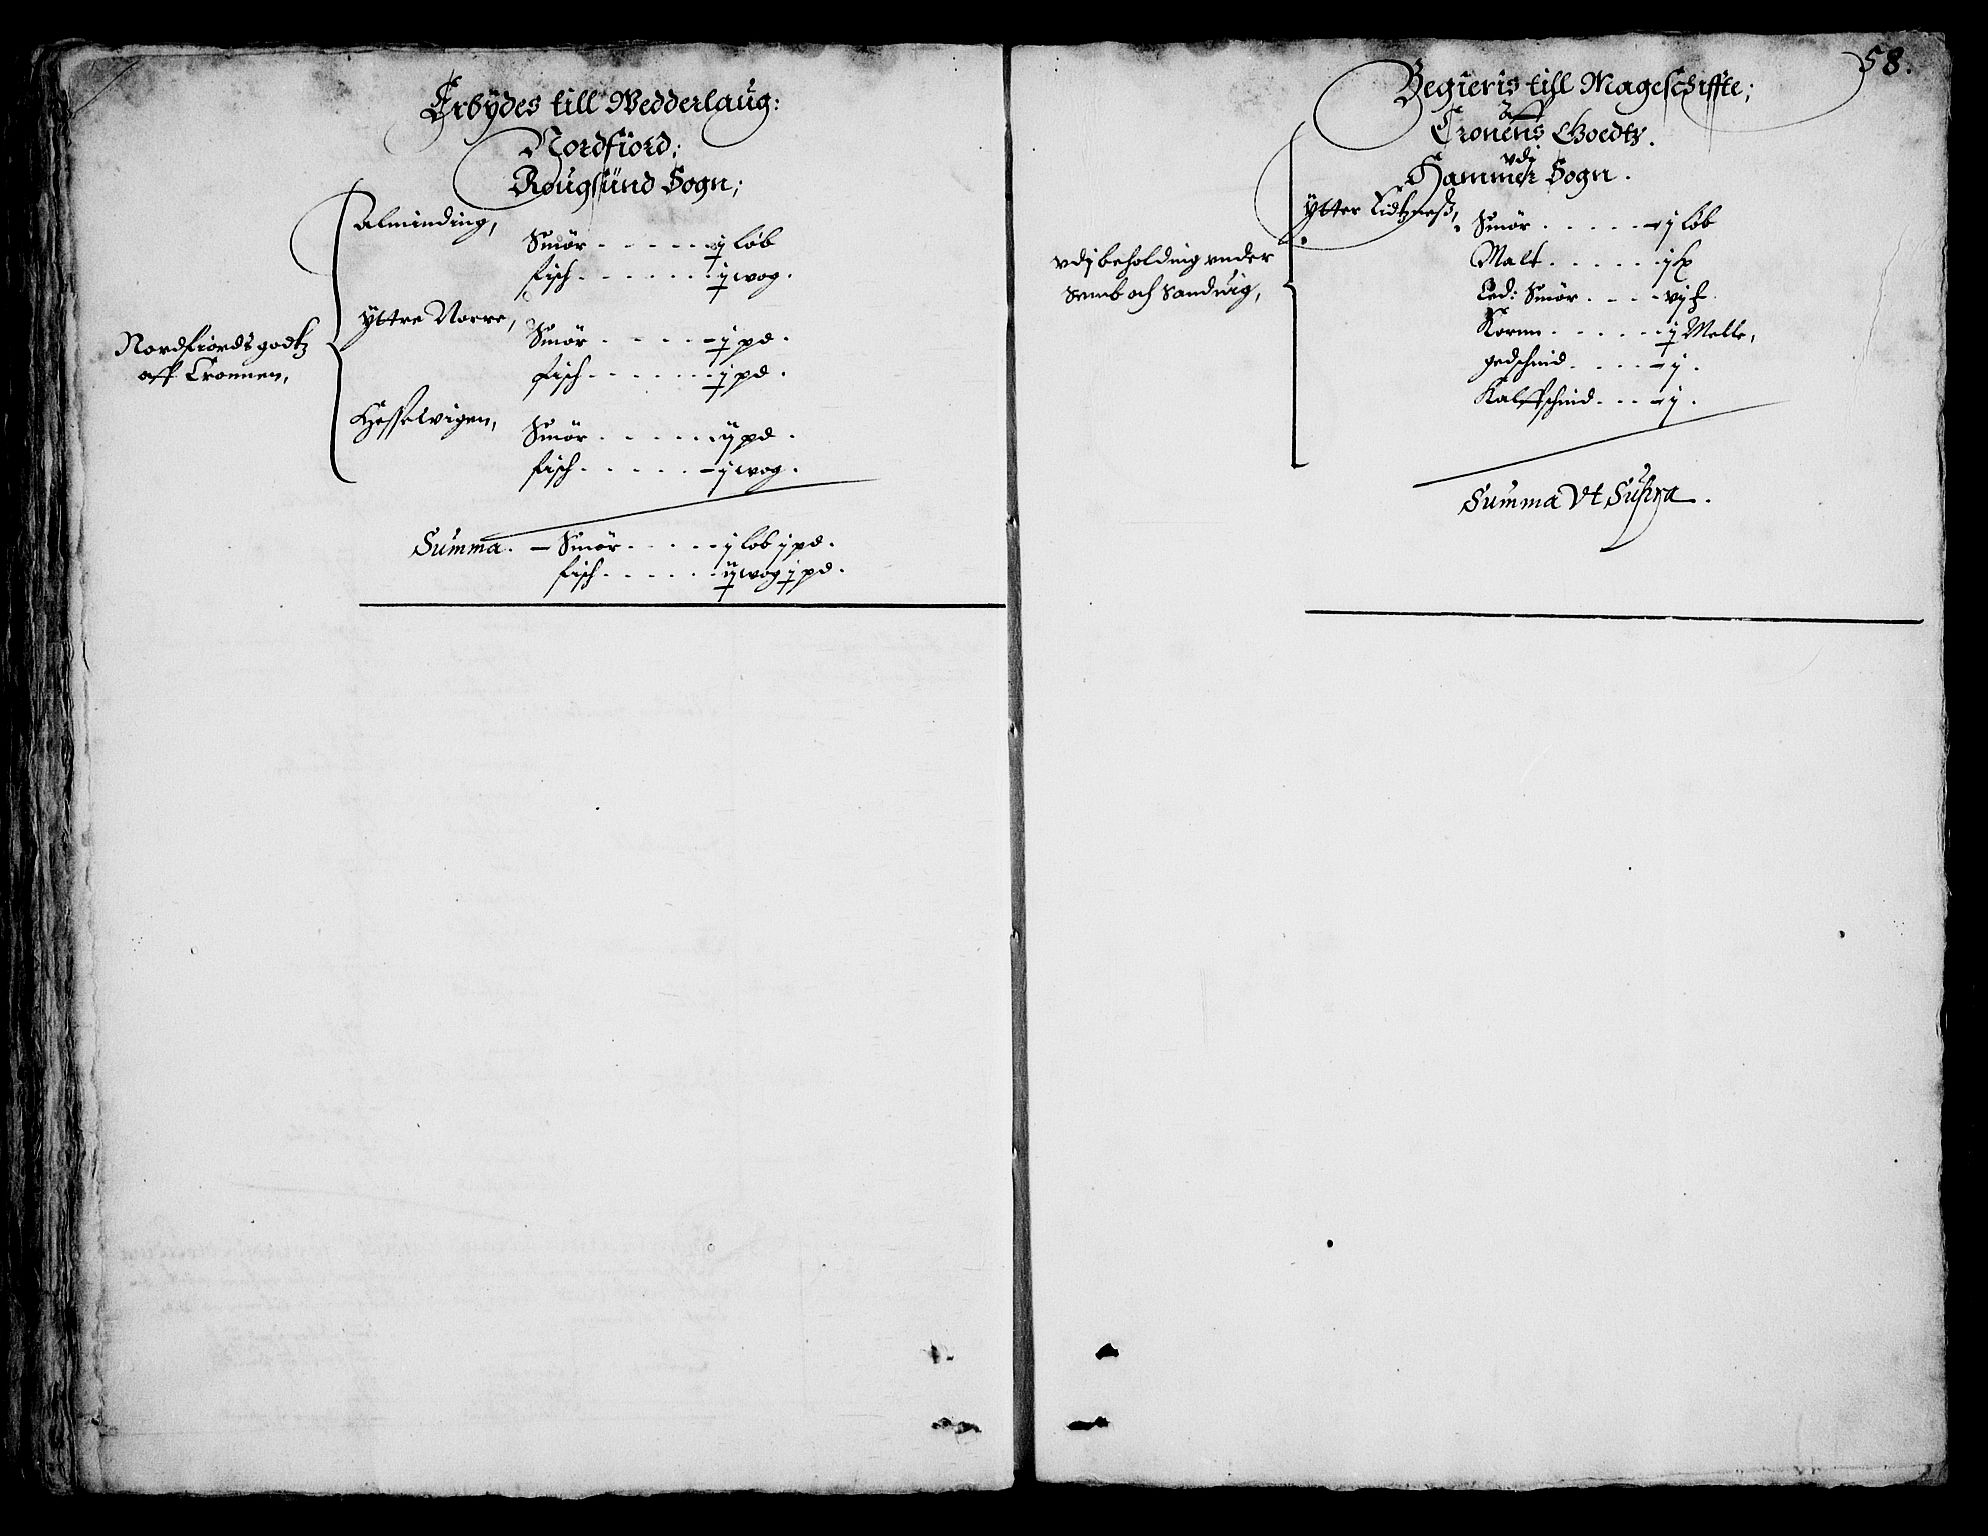 Erbÿdes till Wedderlaug:
Nordfiord;
Rougsund Sogn;
Nordfiords godtz
aff Cronnen,
Alminding,
Smör - - - - - - j löb
fisch - - - - - - j wog.
Yttre Norre,
Smör - - - - - - j pd.
fisch - - - - - - j pd.
Hesselvigen,
Smör - - - - - - ij pd.
fisch - - - - - j wog.
Summa. - Smör - - - - - j löb j pd.
fisch - - - - - - ij wog j pd.
58.
Begieris till Mageschiffte;
aff
Cronens Goedtz.
udj
Hammer Sogn.
vdj beholding vnder
Semb och Sandwig,
Ytter
Smör - - - - - - j löb
Malt - - - - - j
Led: Smör - - - - vj
Kornn - - - - - - j Melle,
gedschind - - - - - j.
Kalffschind - - - - j.
Summa Vt Supra.